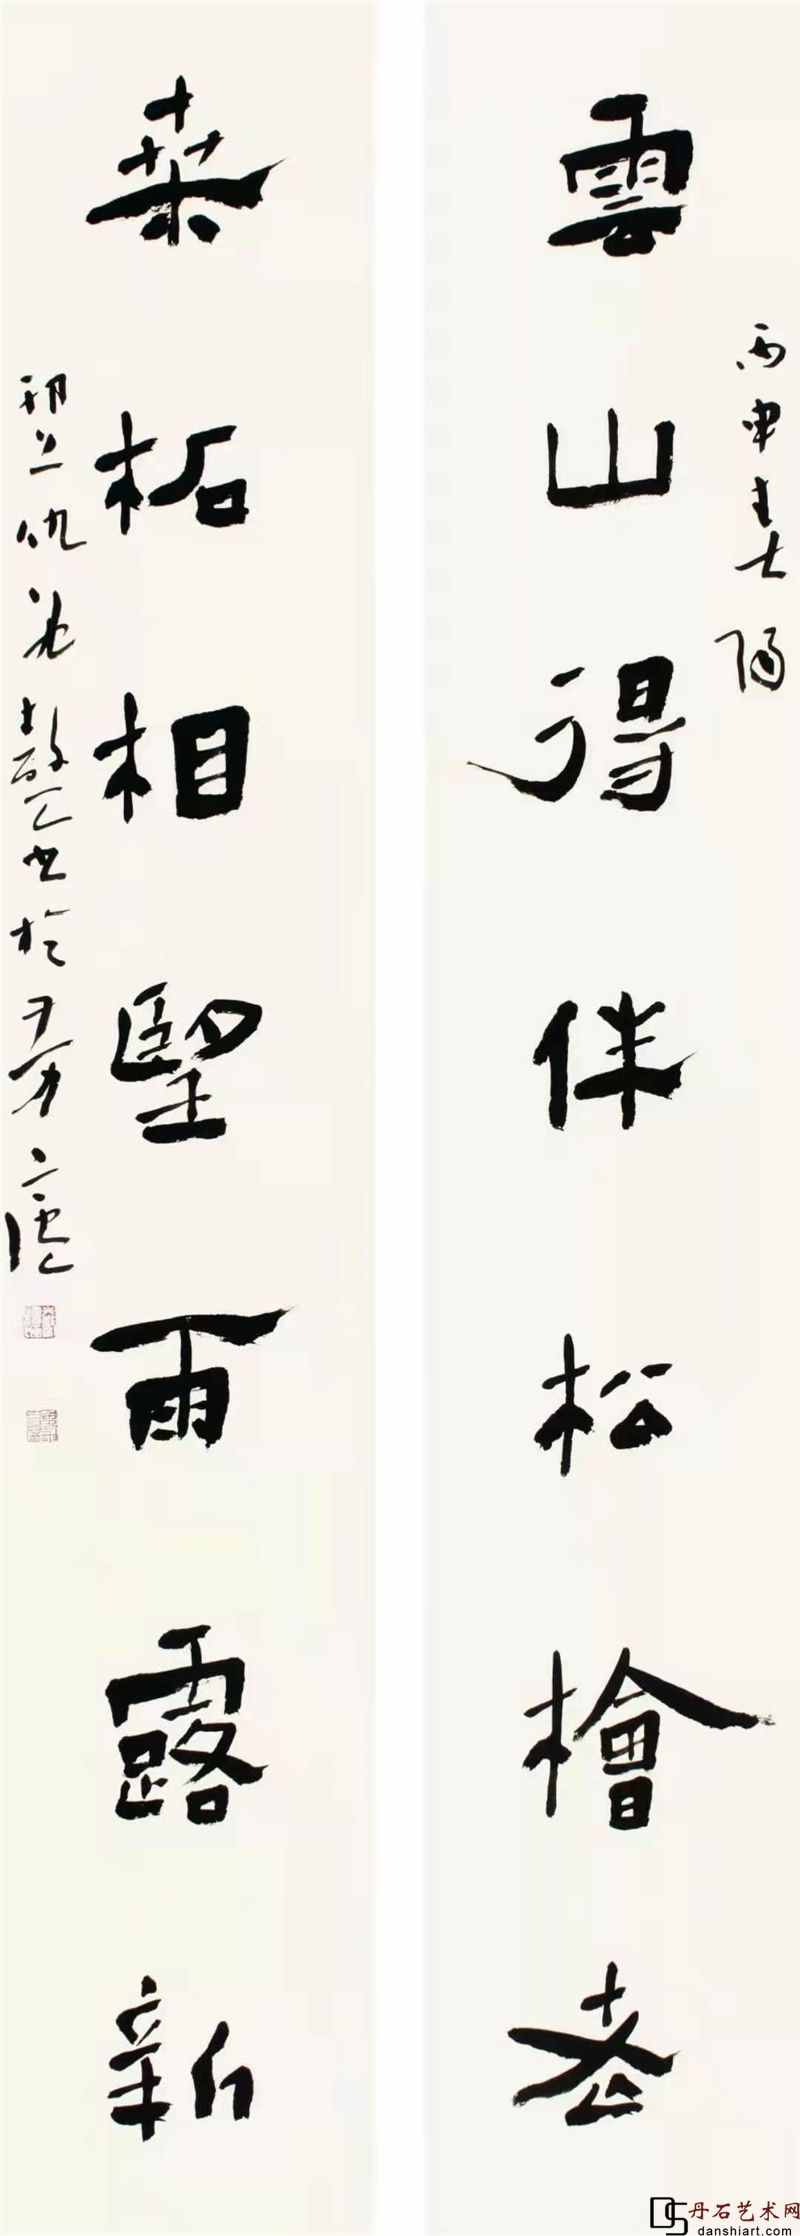 雲山得伴松檜老
丙申春
桑柘相望雨露新
書於
丹石艺术网
danshiart.com